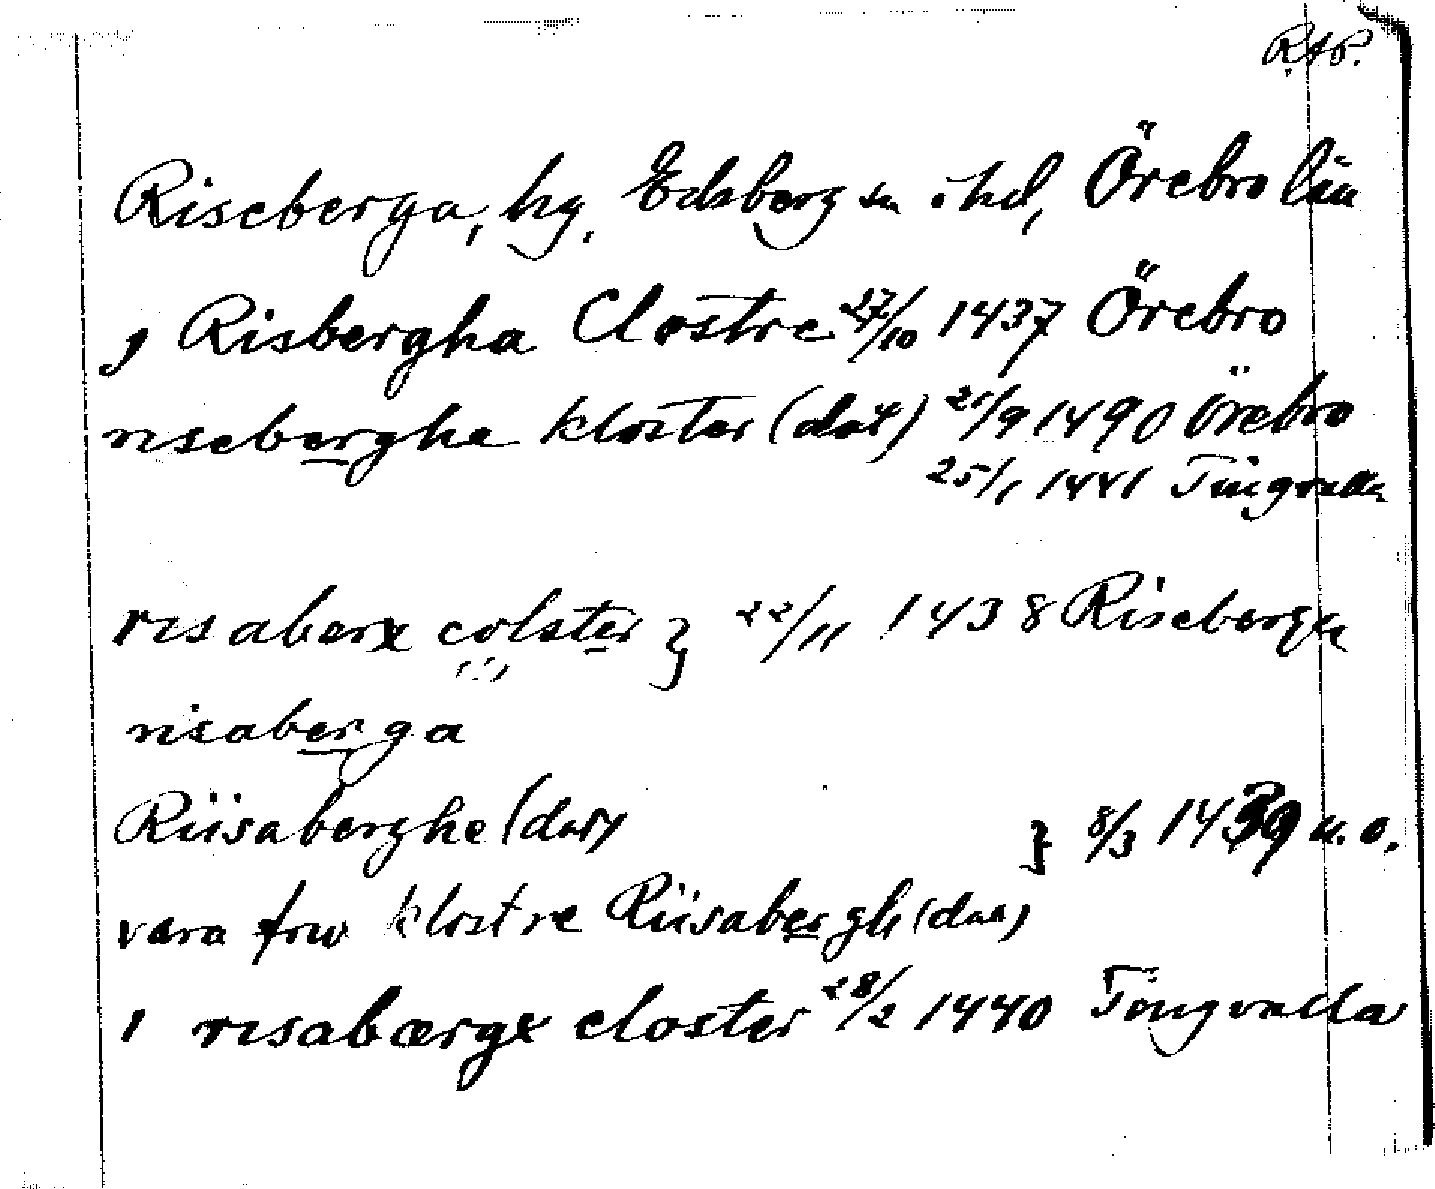 RAP.
Riseberga, hg. Edsberg sn o. hd, Örebro län
j Risbergha Clostre 27/10 1437 Örebro
riseberghe kloster (dat) 21/9 1490 Örebro
25/1 1441 Tingvalla
risaberx colster } 22/11 1438 Riseberga
risaberga
Riisaberghe (dat) } 8/3 1439 u. o.
vara frw klostre Riisabergh (dat)
i risabærgx closter 28/2 1440 Tingvalla